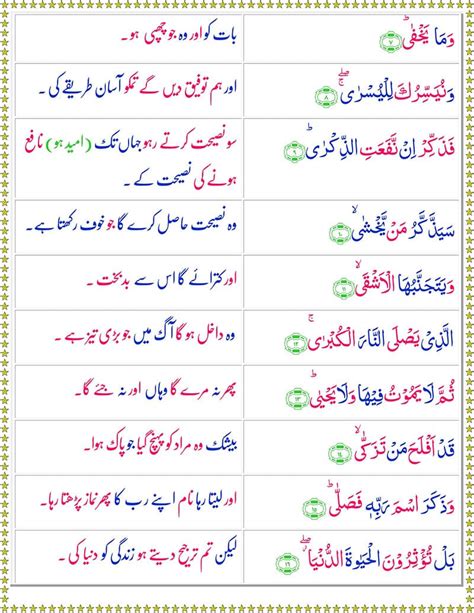 وَمَا يَخْفٰىؕ ۷
بات کو اور وہ جو چھپی ہو۔
وَنُيَسِّرُكَ لِلْيُسْرٰى ۚۖ ۸
اور ہم توفیق دیں گے تمکو آسان طریقے کی۔
فَذَكِّرْ اِنْ نَّفَعَتِ الذِّكْرٰىؕ ۹
سو نصیحت کرتے رہو جہاں تک (امید ہو) نافع
ہونے کی نصیحت کے۔
سَيَذَّكَّرُ مَنْ يَّخْشٰىۙ ۱۰
وہ نصیحت حاصل کرے گا جو خوف رکھتا ہے۔
وَيَتَجَنَّبُهَا الْاَشْقَىۙ ۱۱
اور کترائے گا اس سے بد بخت۔
الَّذِىْ يَصْلَى النَّارَ الْكُبْرٰىۚ ۱۲
وہ داخل ہو گا آگ میں جو بڑی تیز ہے۔
ثُمَّ لَا يَمُوْتُ فِيْهَا وَلَا يَحْيٰىؕ ۱۳
پھر نہ مرے گا وہاں اور نہ جئے گا۔
قَدْ اَفْلَحَ مَنْ تَزَكّٰىۙ ۱۴
بیشک وہ مراد کو پہنچ گیا جو پاک ہوا۔
وَذَكَرَ اسْمَ رَبِّهٖ فَصَلّٰىؕ ۱۵
اور لیتا رہا نام اپنے رب کا پھر نماز پڑھتا رہا۔
بَلْ تُؤْثِرُوْنَ الْحَيٰوةَ الدُّنْيَا ۖ ۱۶
لیکن تم ترجیح دیتے ہو زندگی کو دنیا کی۔